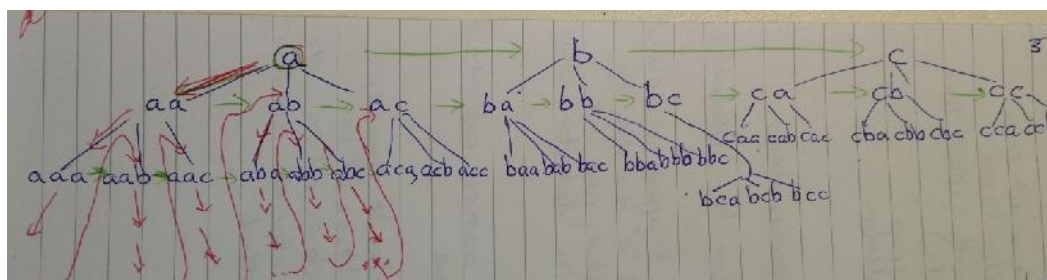 a b c 3
aa ab ac ba bb bc ca cb cc
caa cab cac cba cbb cbc cca ccb
aaa aab aac aba abb abc aca, acb acc baa bab bac bba bbb bbc
bca bcb bcc